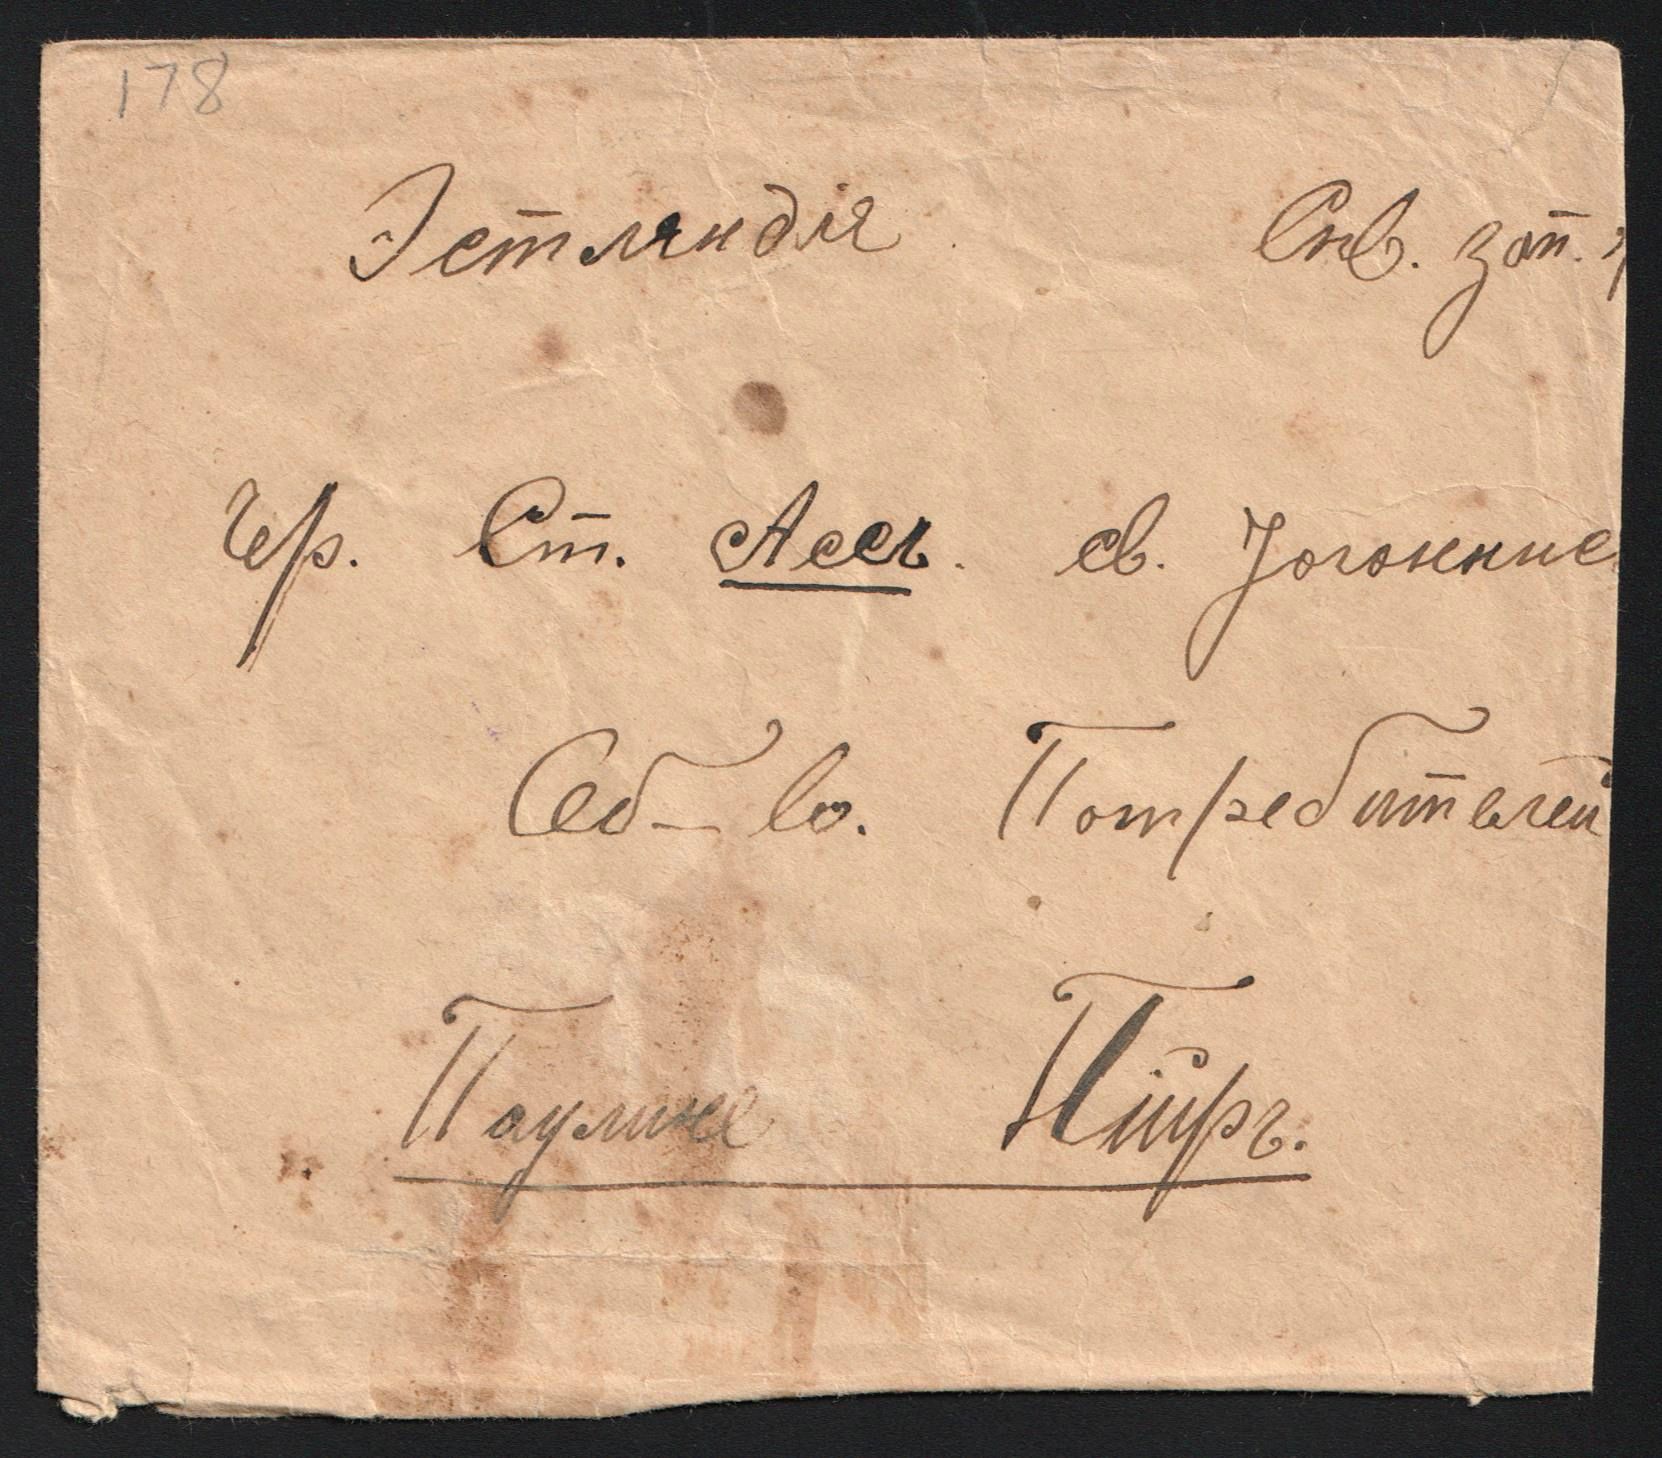 178
Эстляндія Снв. зап.
Чр. Ст. Ассъ. св. Іоганнис
Об-во. Потребителей
Паулине Пійръ.